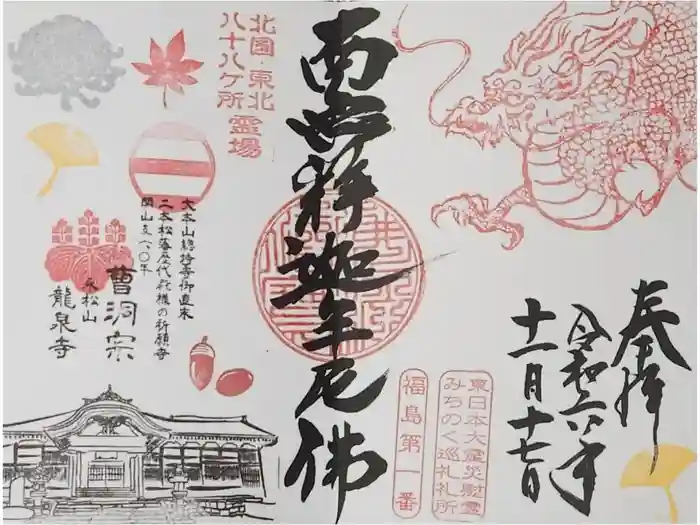 奉拝
令和六年
十一月十七日
南無釈迦牟尼佛
東日本大震災慰霊
みちのく巡礼札所
福島第一番
北国・東北
八十八ケ所 霊場
大本山總持寺御直末
二本松藩歴代殿様の祈願寺
開山六八〇年
曹洞宗
永松山
龍泉寺